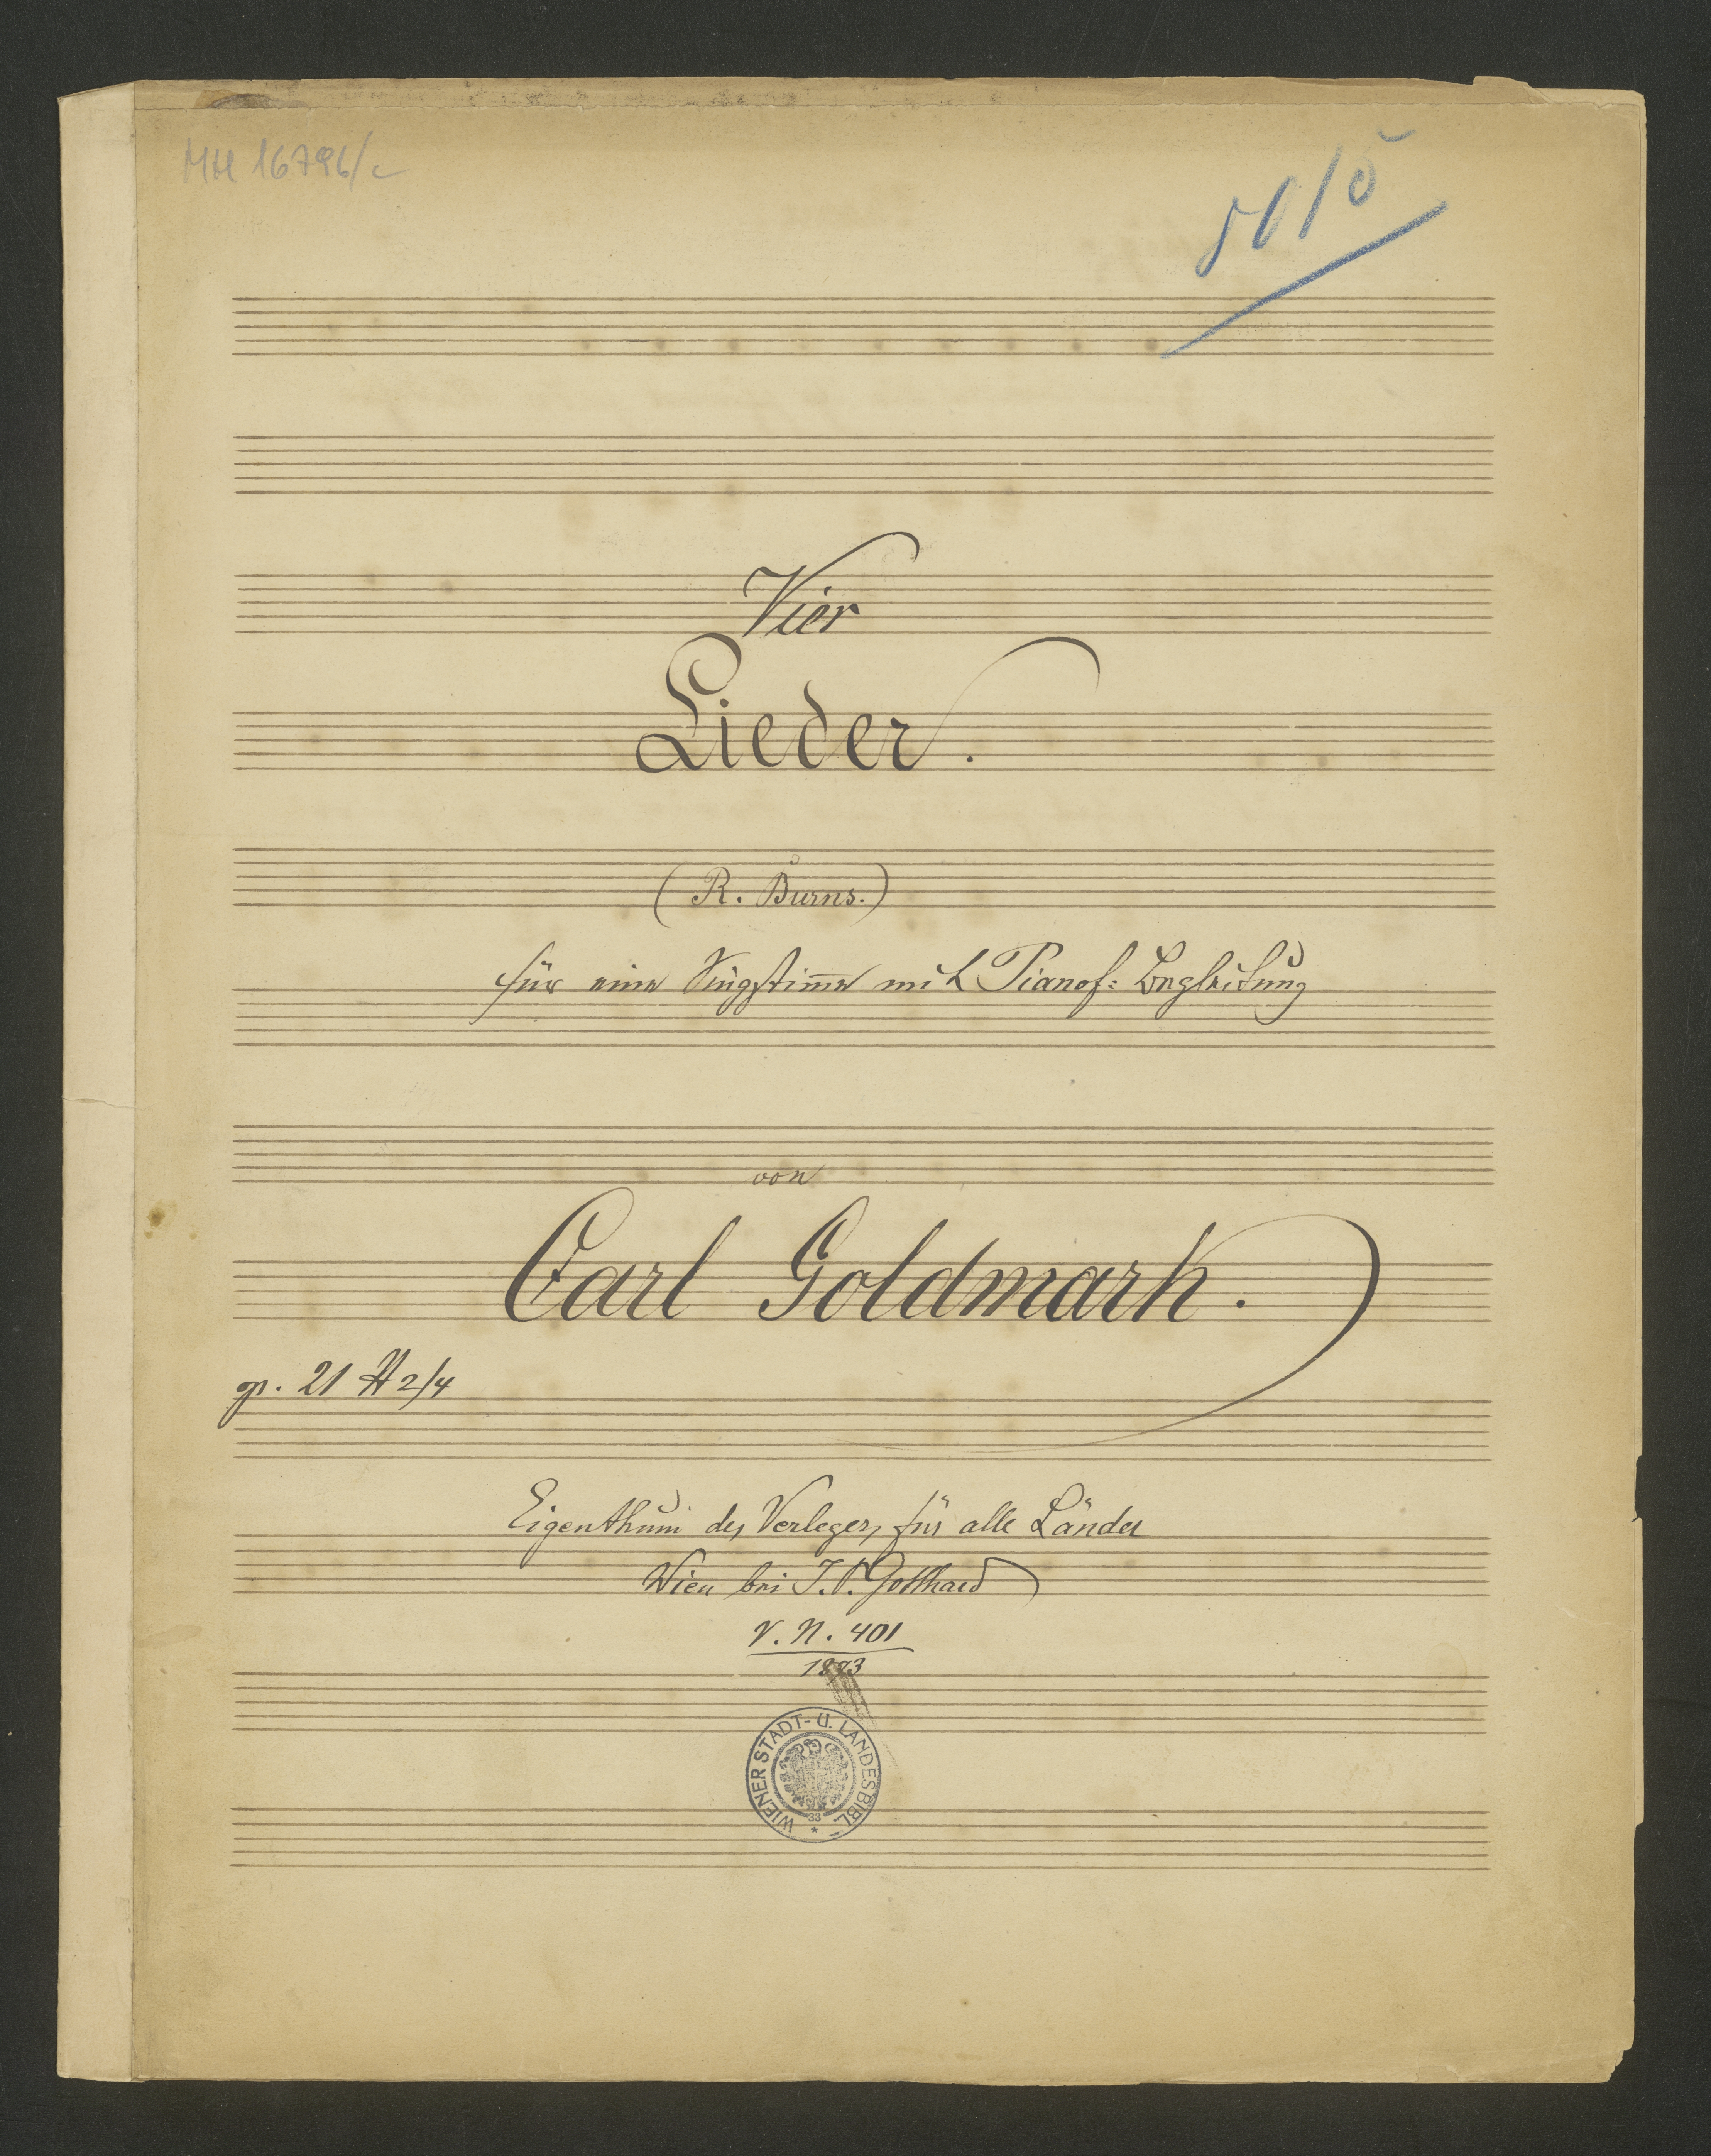 MH 16796/c
5015
Vier
Lieder.
(R. Burns.)
für eine Singstim̅e mit Pianof: Begleitung
von
Carl Goldmark.
op. 21 H 2/4
Eigenthum des Verlegers für alle Länder
Wien bei J. P. Gotthard
V. N. 401
1873
WIENER STADT- U. LANDESBIBL.
33